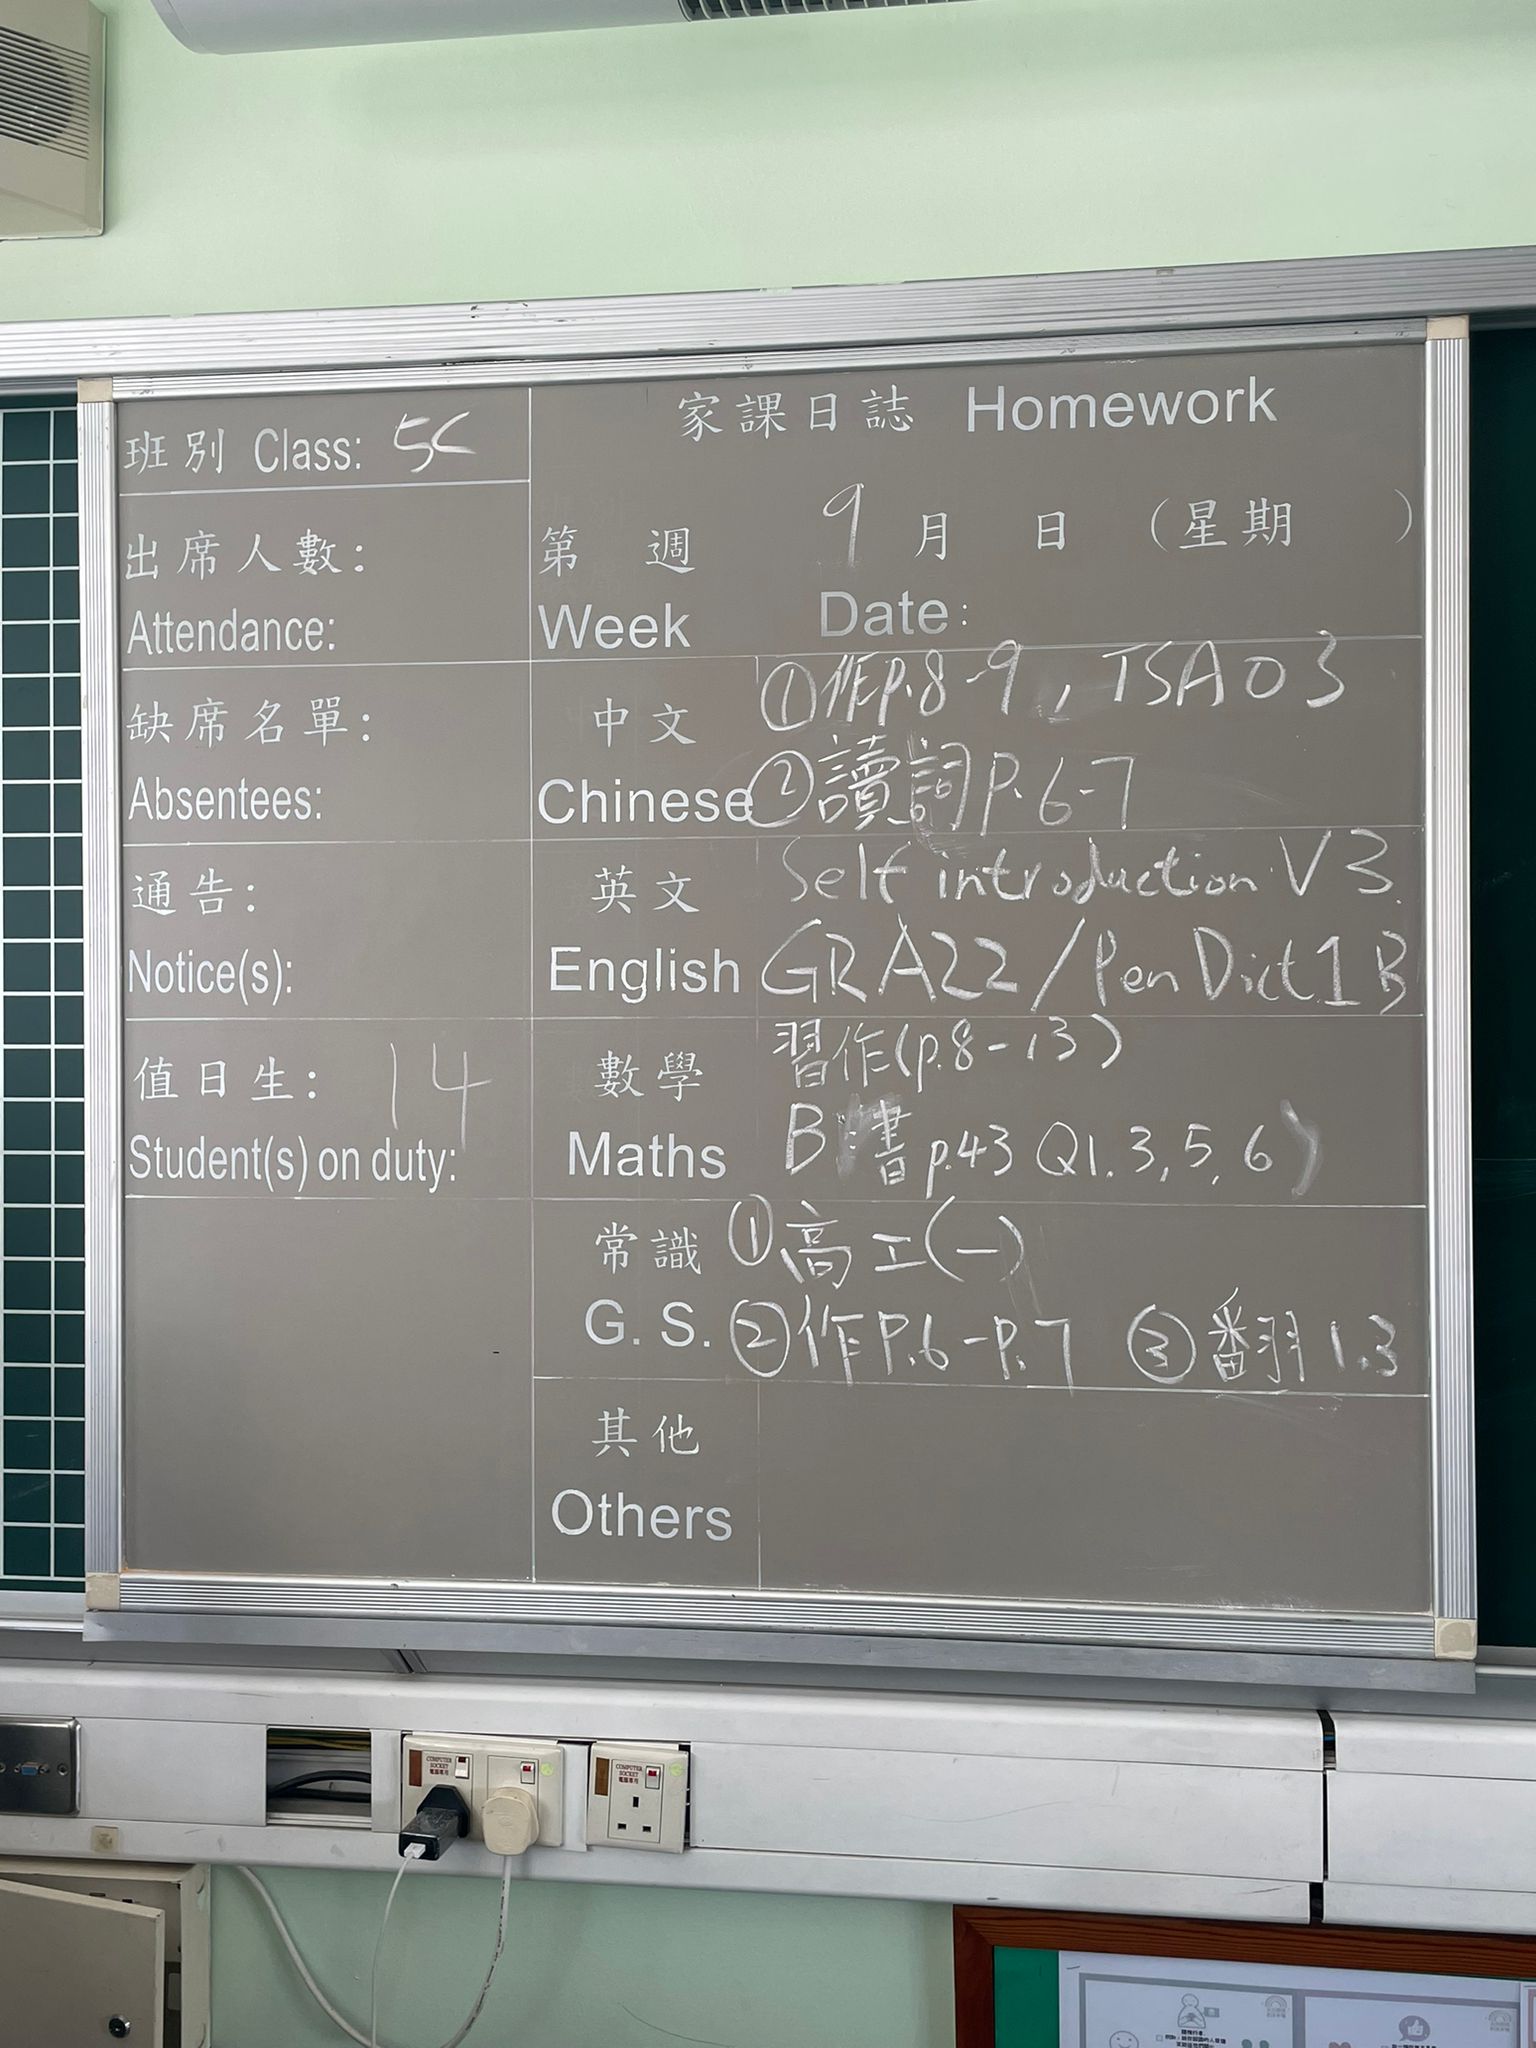 家課日誌 Homework
班別 Class: 5C
出席人數:
Attendance:
第 週 9月 日 (星期 )
Week Date:
缺席名單:
Absentees:
中文
Chinese
①作P.8-9, TSA03
②讀詞P.6-7
通告:
Notice(s):
英文
English
Self introduction V3.
GRA22/Pen Dict1B
值日生: 14
Student(s) on duty:
數學
Maths
習作(p.8-13)
B書p.43 Q1.3,5,6)
常識
G. S.
①高工(一)
②作P.6-P.7 ③翻習1.3
其他
Others
COMPUTER
SOCKET
電腦專用
COMPUTER
SOCKET
電腦專用